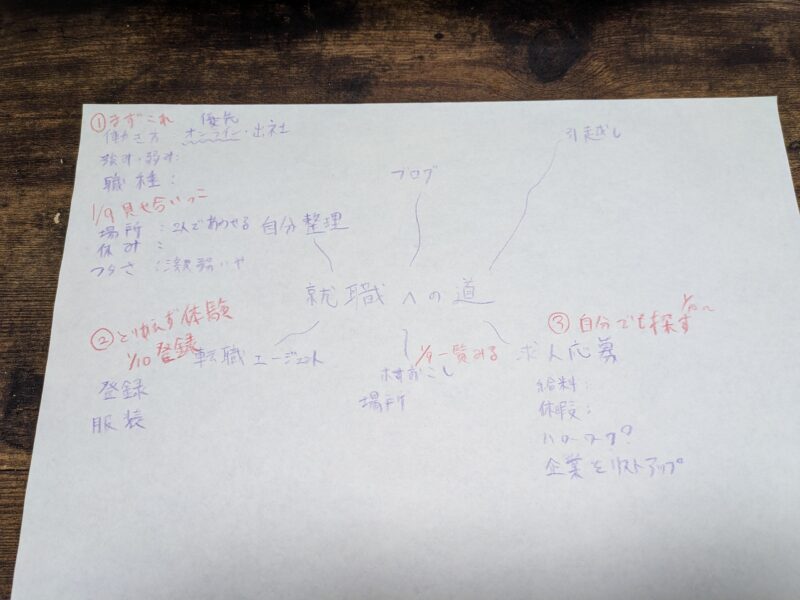 ① まずこれ
優先
働き方 オンライン・出社
強み・弱み:
職種:
1/9 見せあいっこ
場所:2人であわせる
休み:
自分整理
ブログ
引越し
就職への道
② とりあえず体験
1/10 登録
転職エージェント
登録
服装
1/9 一覧みる
村おこし
場所
③ 自分でも探す
1/10〜
求人応募
給料:
休暇:
ハローワーク?
企業をリストアップ